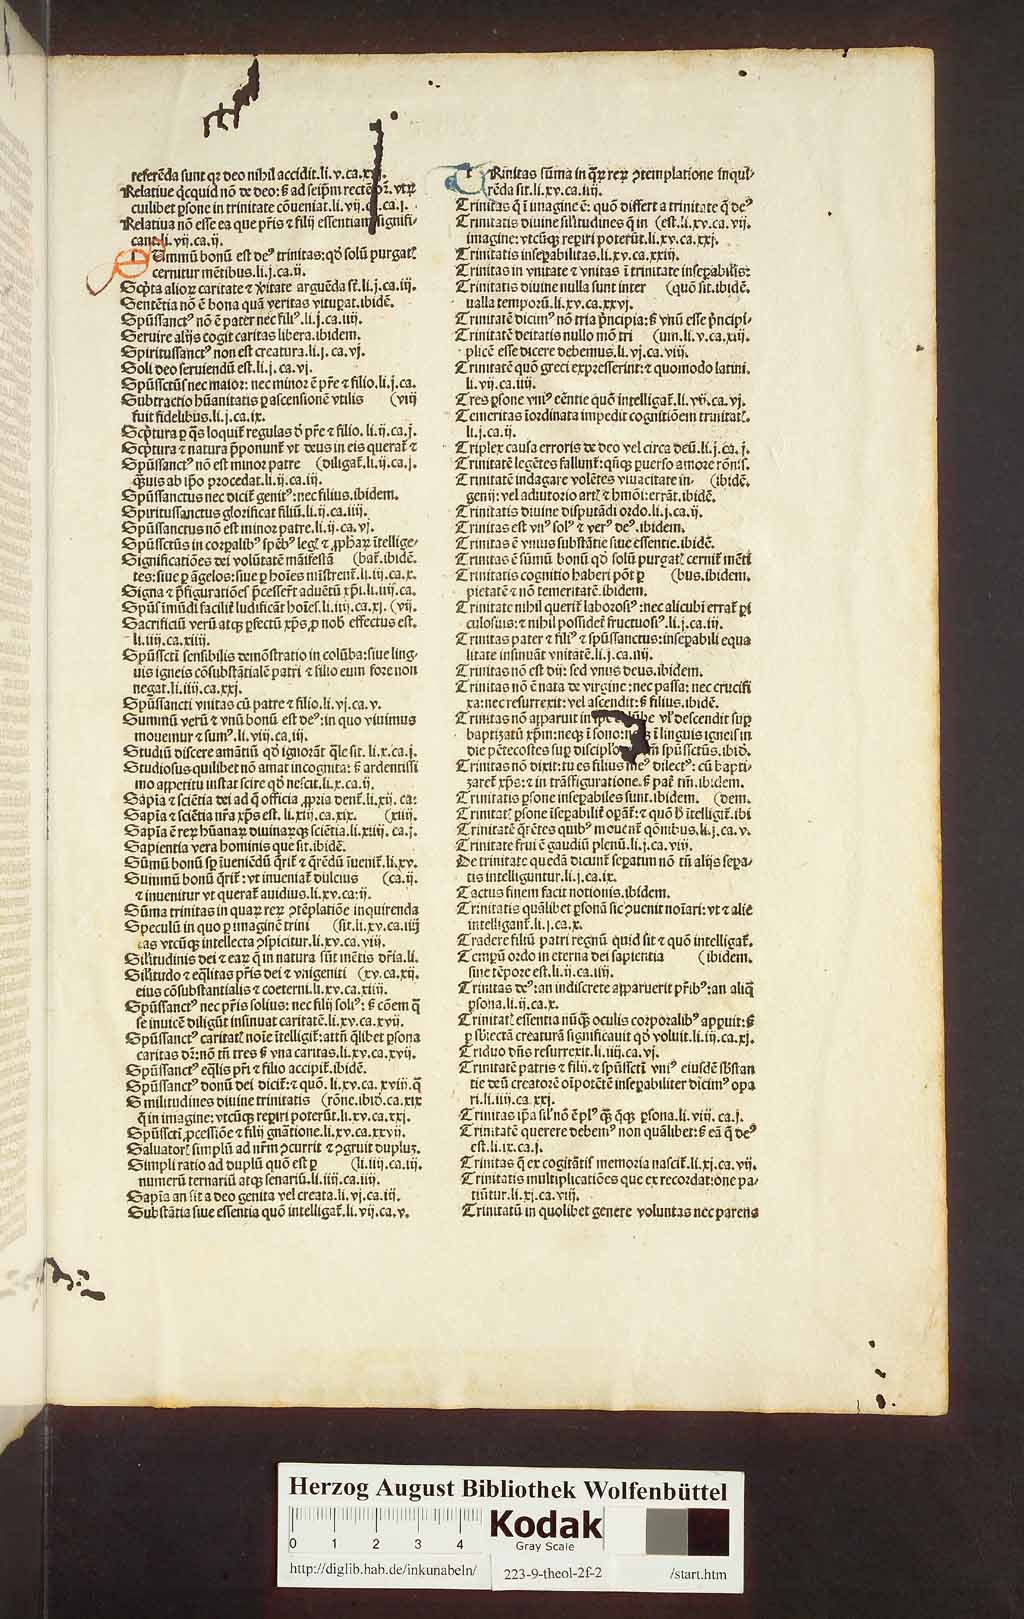 referēda sunt qꝛ deo nihil accidit.li.v.ca.
Relatiue q̇cquid nō de deo: ẜ ad seip̄m rectē vtꝝ
cuilibet ꝑsone in trinitate cōueniat.li.vij. ca.j.
Relatiua nō esse ea que pr̄is ⁊ filij essentiam signifi-
cant.li.vij.ca.ij.
Summū bonū est deꝰ trinitas: qd̄ solū purgatꝭ
cernitur mētibus.li.j.ca.ij.
Scp̄ta alioꝝ caritate ⁊ v̄itate arguēda st̄.li.j.ca.iij.
Sentētia nō ē bona quā veritas vituꝑat.ibidē.
Spūssanctꝰ nō ē pater nec filiꝰ.li.j.ca.iiij.
Seruire alijs cogit caritas libera.ibidem.
Spiritussanctꝰ non est creatura.li.j.ca.vj.
Soli deo seruiendū est.li.j.ca.vj.
Spūssctūs nec maior: nec minor ē pr̄e ⁊ filio.li.j.ca.
Subtractio hūanitatis ꝑ ascensionē vtilis (viij
fuit fidelibus.li.j.ca.ix.
Scp̄tura ꝑ q̄s loquit̄ regulas d̄ pr̄e ⁊ filio.li.ij.ca.j.
Scp̄tura ⁊ natura p̄ponunt̄ vt deus in eis querat̄ ⁊
Spūssanctꝰ nō est minor patre (diligat̄.li.ij.ca.j.
q̄uis ab ip̄o procedat.li.ij.ca.iij.
Spūssanctus nec dicit̄ genitꝰ: nec filius.ibidem.
Spiritussanctus glorificat filiū.li.ij.ca.iiij.
Spūssanctus nō est minor patre.li.ij.ca.vj.
Spūssctūs in corꝑalibꝰ spēbꝰ legꝭ ⁊ ꝓphaꝝ ītellige-
Significatiōes dei volūtatē māifestā (bat̄.ibidē.
tes: siue ꝑ āgelos: siue ꝑ hoīes mīstrent̄.li.iij.ca.x.
Signa ⁊ p̄figuratiōes p̄cesser̄t aduētū xp̄i.li.iiij.ca.
Spūs īmūdi facilit̄ ludificāt hoīes.li.iiij.ca.xj. (vij.
Sacrificiū verū atqꝫ ꝑfectū xp̄s, ꝓ nob̄ effectus est.
li.iiij.ca.xiiij.
Spūssctī sensibilis demōstratio in colūba: siue ling-
uis igneis cōsubstātialē patri ⁊ filio eum fore non
negat.li.iiij.ca.xxj.
Spūssancti vnitas cū patre ⁊ filio.li.vj.ca.v.
Summū verū ⁊ vnū bonū est deꝰ: in quo viuimus
mouemur ⁊ sumꝰ.li.viij.ca.iij.
Studiū discere amātiū qd̄ ignorāt q̄le sit.li.x.ca.j.
Studiosus quilibet nō amat incognita: ẜ ardentissi
mo appetitu instat scire qd̄ nescit.li.x.ca.ij.
Sapīa ⁊ sciētia dei ad q̄ officia ,ꝓpria dent̄.li.xij.ca:
Sapīa ⁊ sciētia nr̄a xp̄s est.li.xiij.ca.xix. (xiiij.
Sapīa ē reꝝ hūanaꝝ diuinaꝝqꝫ sciētia.li.xiiij.ca.j.
Sapientia vera hominis que sit.ibidē.
Sūmū bonū sꝑ īueniēdū q̄rit̄ ⁊ q̄rēdū īuenit̄.li.xv.
Summū bonū q̄rit̄: vt inueniat̄ dulcius (ca.ij.
⁊ inuenitur vt querat̄ auidius.li.xv.ca:ij.
Sūma trinitas in quaꝝ reꝝ ↄtēplatiōe inquirenda
Speculū in quo ꝑ imaginē trini (sit.li.xv.ca.iiij
tas vtcūqꝫ intellecta ↄspicitur.li.xv.ca.viij.
Sil̄itudinis dei ⁊ eaꝝ q̄ in natura sūt mētis dr̄ia.li.
Sil̄itudo ⁊ eq̄litas pr̄is dei ⁊ vnigeniti (xv.ca.xij.
eius cōsubstantialis ⁊ coeterni.li.xv.ca.xiiij.
Spūssanctꝰ nec pr̄is solius: nec filij soliꝰ: ẜ cōem q̄
se inuicē diligūt insinuat caritatē.li.xv.ca.xvij.
Spūssanctꝰ caritatꝭ noīe ītelligit̄: attn̄ q̄libet ꝑsona
caritas dr̄: nō tn̄ tres ẜ vna caritas.li.xv.ca.xvij.
Spūssanctꝰ eq̄lis pr̄i ⁊ filio accipit̄.ibidē.
Spūssanctꝰ donū dei dicit̄: ⁊ quō.li.xv.ca.xviij.q̄
Similitudines diuine trinitatis (rōne.ibid̄.ca.xix
q̄ in imagine: vtcūqꝫ reꝑiri poterūt.li.xv.ca.xxj.
Spūssctī ꝓcessiōe ⁊ filij gnātione.li.xv.ca.xxvij.
Saluatorꝭ simplū ad nr̄m ↄcurrit ⁊ ↄgruit dupluꝫ.
Simpli ratio ad duplū quō est ꝑ (li.iiij.ca.iij.
numerū ternariū atqꝫ senariū.li.iiij.ca.iiij.
Sapīa an sit a deo genita vel creata.li.vj.ca.iij.
Substātia siue essentia quō intelligat̄.li.vij.ca.v.
TRinitas sūma in q̄ꝝ reꝝ ↄtemplatione inqui-
rēda sit.li.xv.ca.iiij.
Trinitas q̄ ī imagine ē: quō differt a trinitate q̄ deꝰ
Trinitatis diuine sil̄itudines q̄ in (est.li.xv.ca.vij.
imagine: vtcūqꝫ reꝑiri poterūt.li.xv.ca.xxj.
Trinitatis inseꝑabilitas.li.xv.ca.xxiij.
Trinitas in vnitate ⁊ vnitas ī trinitate inseꝑabilis:
Trinitatis diuine nulla sunt inter (quō sit.ibidē.
ualla temporū.li.xv.ca.xxvj.
Trinitatē dicimꝰ nō tria p̄ncipia: ẜ vnū esse p̄ncipi-
Trinitatē deitatis nullo mō tri (um.li.v.ca.xiij.
plicē esse dicere debemus.li.vj.ca.viij.
Trinitatē quō greci expresserint: ⁊ quomodo latini.
li.vij.ca.iiij.
Tres ꝑsone vniꝰ eēntie quō intelligat̄.li.vij.ca.vj.
Temeritas īordinata impedit cognitiōem trinitatꝭ.
li.j.ca.ij.
Triplex causa erroris de deo vel circa deū.li.j.ca.j.
Trinitatē legētes fallunt̄: qūqꝫ ꝑuerso amore rōnis.
Trinitatē indagare volētes viuacitate in- (ibidē.
genij: vel adiutorio artꝭ ⁊ hmōi: errāt.ibidē.
Trinitatis diuine disputādi ordo.li.j.ca.ij.
Trinitas est vnꝰ solꝰ ⁊ verꝰ deꝰ.ibidem.
Trinitas ē vnius substātie siue essentie.ibidē.
Trinitas ē sūmū bonū qd̄ solū purgatꝭ cernit̄ mēti
Trinitatis cognitio haberi pōt ꝑ (bus.ibidem.
pietatē ⁊ nō temeritatē.ibidem.
Trinitate nihil querit̄ laboriosiꝰ: nec alicubi errat̄ ꝑi
culosius: ⁊ nihil possidet̄ fructuosiꝰ.li.j.ca.iij.
Trinitas pater ⁊ filiꝰ ⁊ spūssanctus: inseꝑabili equa
litate insinuāt vnitatē.li.j.ca.iiij.
Trinitas nō est dij: sed vnus deus.ibidem.
Trinitas nō ē nata de virgine: nec passa: nec crucifi
xa: nec resurrexit: vel ascendit: ẜ filius.ibidē.
Trinitas nō apparuit in vl̄ descendit suꝑ
baptizatū xp̄m: neqꝫ ī sono: ī linguis igneis in
die pētecostes suꝑ disciplo spūssctūs.ibid̄.
Trinitas nō dixit: tu es filius meꝰ dilectꝰ: cū bapti-
zaret̄ xp̄s: ⁊ in trāsfiguratione. ẜ pat̄ tm̄.ibidem.
Trinitatis ꝑsone inseꝑabiles sunt.ibidem. (dem.
Trinitatꝭ ꝑsone īseꝑabilit̄ oꝑāt̄: ⁊ quō h̄ ītelligit̄.ibi
Trinitatē q̄rētes quibꝰ mouent̄ q̄ōnibus.li.j.ca.v.
Trinitate frui ē gaudiū plenū.li.j.ca.viij.
De trinitate quedā dicunt̄ seꝑatim nō tn̄ alijs seꝑa-
tis intelliguntur.li.j.ca.ix.
Tactus finem facit notionis.ibidem.
Trinitatis quālibet ꝑsonā sic ↄuenit noīari: vt ⁊ alie
intelligant̄.li.j.ca.x.
Tradere filiū patri regnū quid sit ⁊ quō intelligat̄.
Tempꝰ ordo in eterna dei sapientia (ibidem.
sine tēpore est.li.ij.ca.iiij.
Trinitas deꝰ: an indiscrete apparuerit pr̄ibꝰ: an aliq̄
ꝑsona.li.ij.ca.x.
Trinitatꝭ essentia nūq̄ꝫ oculis corporalibꝰ apꝑuit: ẜ
ꝑ sb̄iectā creaturā significauit qd̄ voluit.li.iij.ca.xj.
Triduo dn̄s resurrexit.li.iiij.ca.vj.
Trinitatē patris ⁊ filij. ⁊ spūssctī vniꝰ eiusdē sb̄stan
tie deū creatorē oīpotētē inseꝑabiliter dicimꝰ opa
ri.li.iiij.ca.xxj.
Trinitas ip̄a sil̄ nō ē plꝰ q̄ꝫ q̄qꝫ ꝑsona.li.viij.ca.j.
Trinitatē querere debemꝰ non quālibet: ẜ eā q̄ deꝰ
est.li.ix.ca.j.
Trinitas q̄ ex cogitātis memoria nascit̄.li.xj.ca.vij.
Trinitatis multiplicatiōes que ex recordat: one pa-
tiūtur.li.xj.ca.viij.
Trinitatū in quolibet genere voluntas nec parens
Herzog August Bibliothek Wolfenbüttel
0 1 2 3 4
Kodak
Gray Scale
http://diglib.hab.de/inkunabeln/ 223-9-theol-2f-2 /start.htm